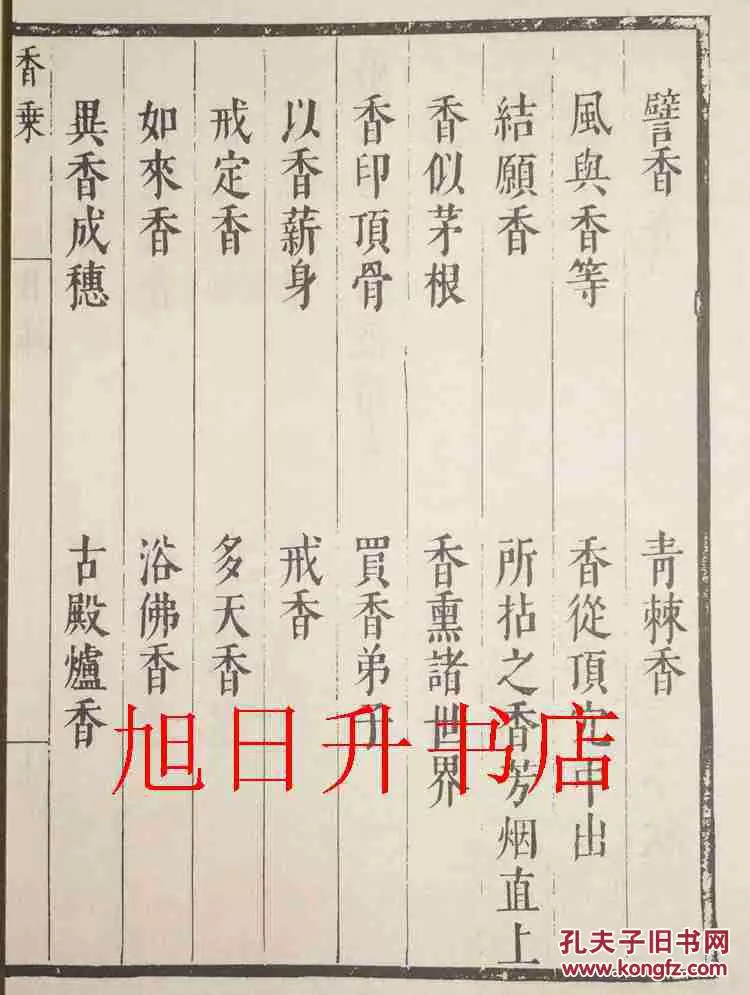 譬香 青棘香
風與香等 香從頂穴中出
結願香 所拈之香芳烟直上
香似茅根 香熏諸世界
香印頂骨 買香弟子
以香薪身 戒香
戒定香 多天香
如來香 浴佛香
異香成穗 古殿爐香
香乗
旭日升书店
孔夫子旧书网
www.kongfz.com